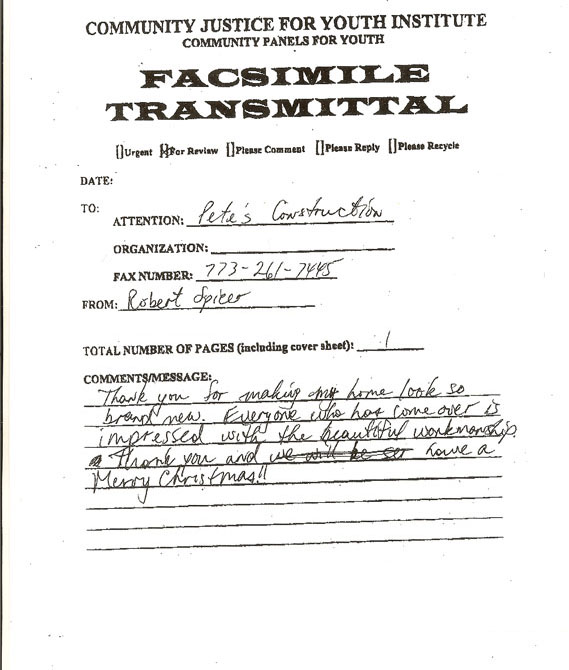 COMMUNITY JUSTICE FOR YOUTH INSTITUTE
COMMUNITY PANELS FOR YOUTH
FACSIMILE
TRANSMITTAL
[]Urgent [X]For Review []Please Comment []Please Reply []Please Recycle
DATE:
TO:
ATTENTION: Pete's Construction
ORGANIZATION:
FAX NUMBER: 773-261-7445
FROM: Robert Spicer
TOTAL NUMBER OF PAGES (including cover sheet): 1
COMMENTS/MESSAGE:
Thank you for making my home look so
brand new. Everyone who has come over is
impressed with the beautiful workmanship.
Thank you and we will be have a
Merry Christmas!!